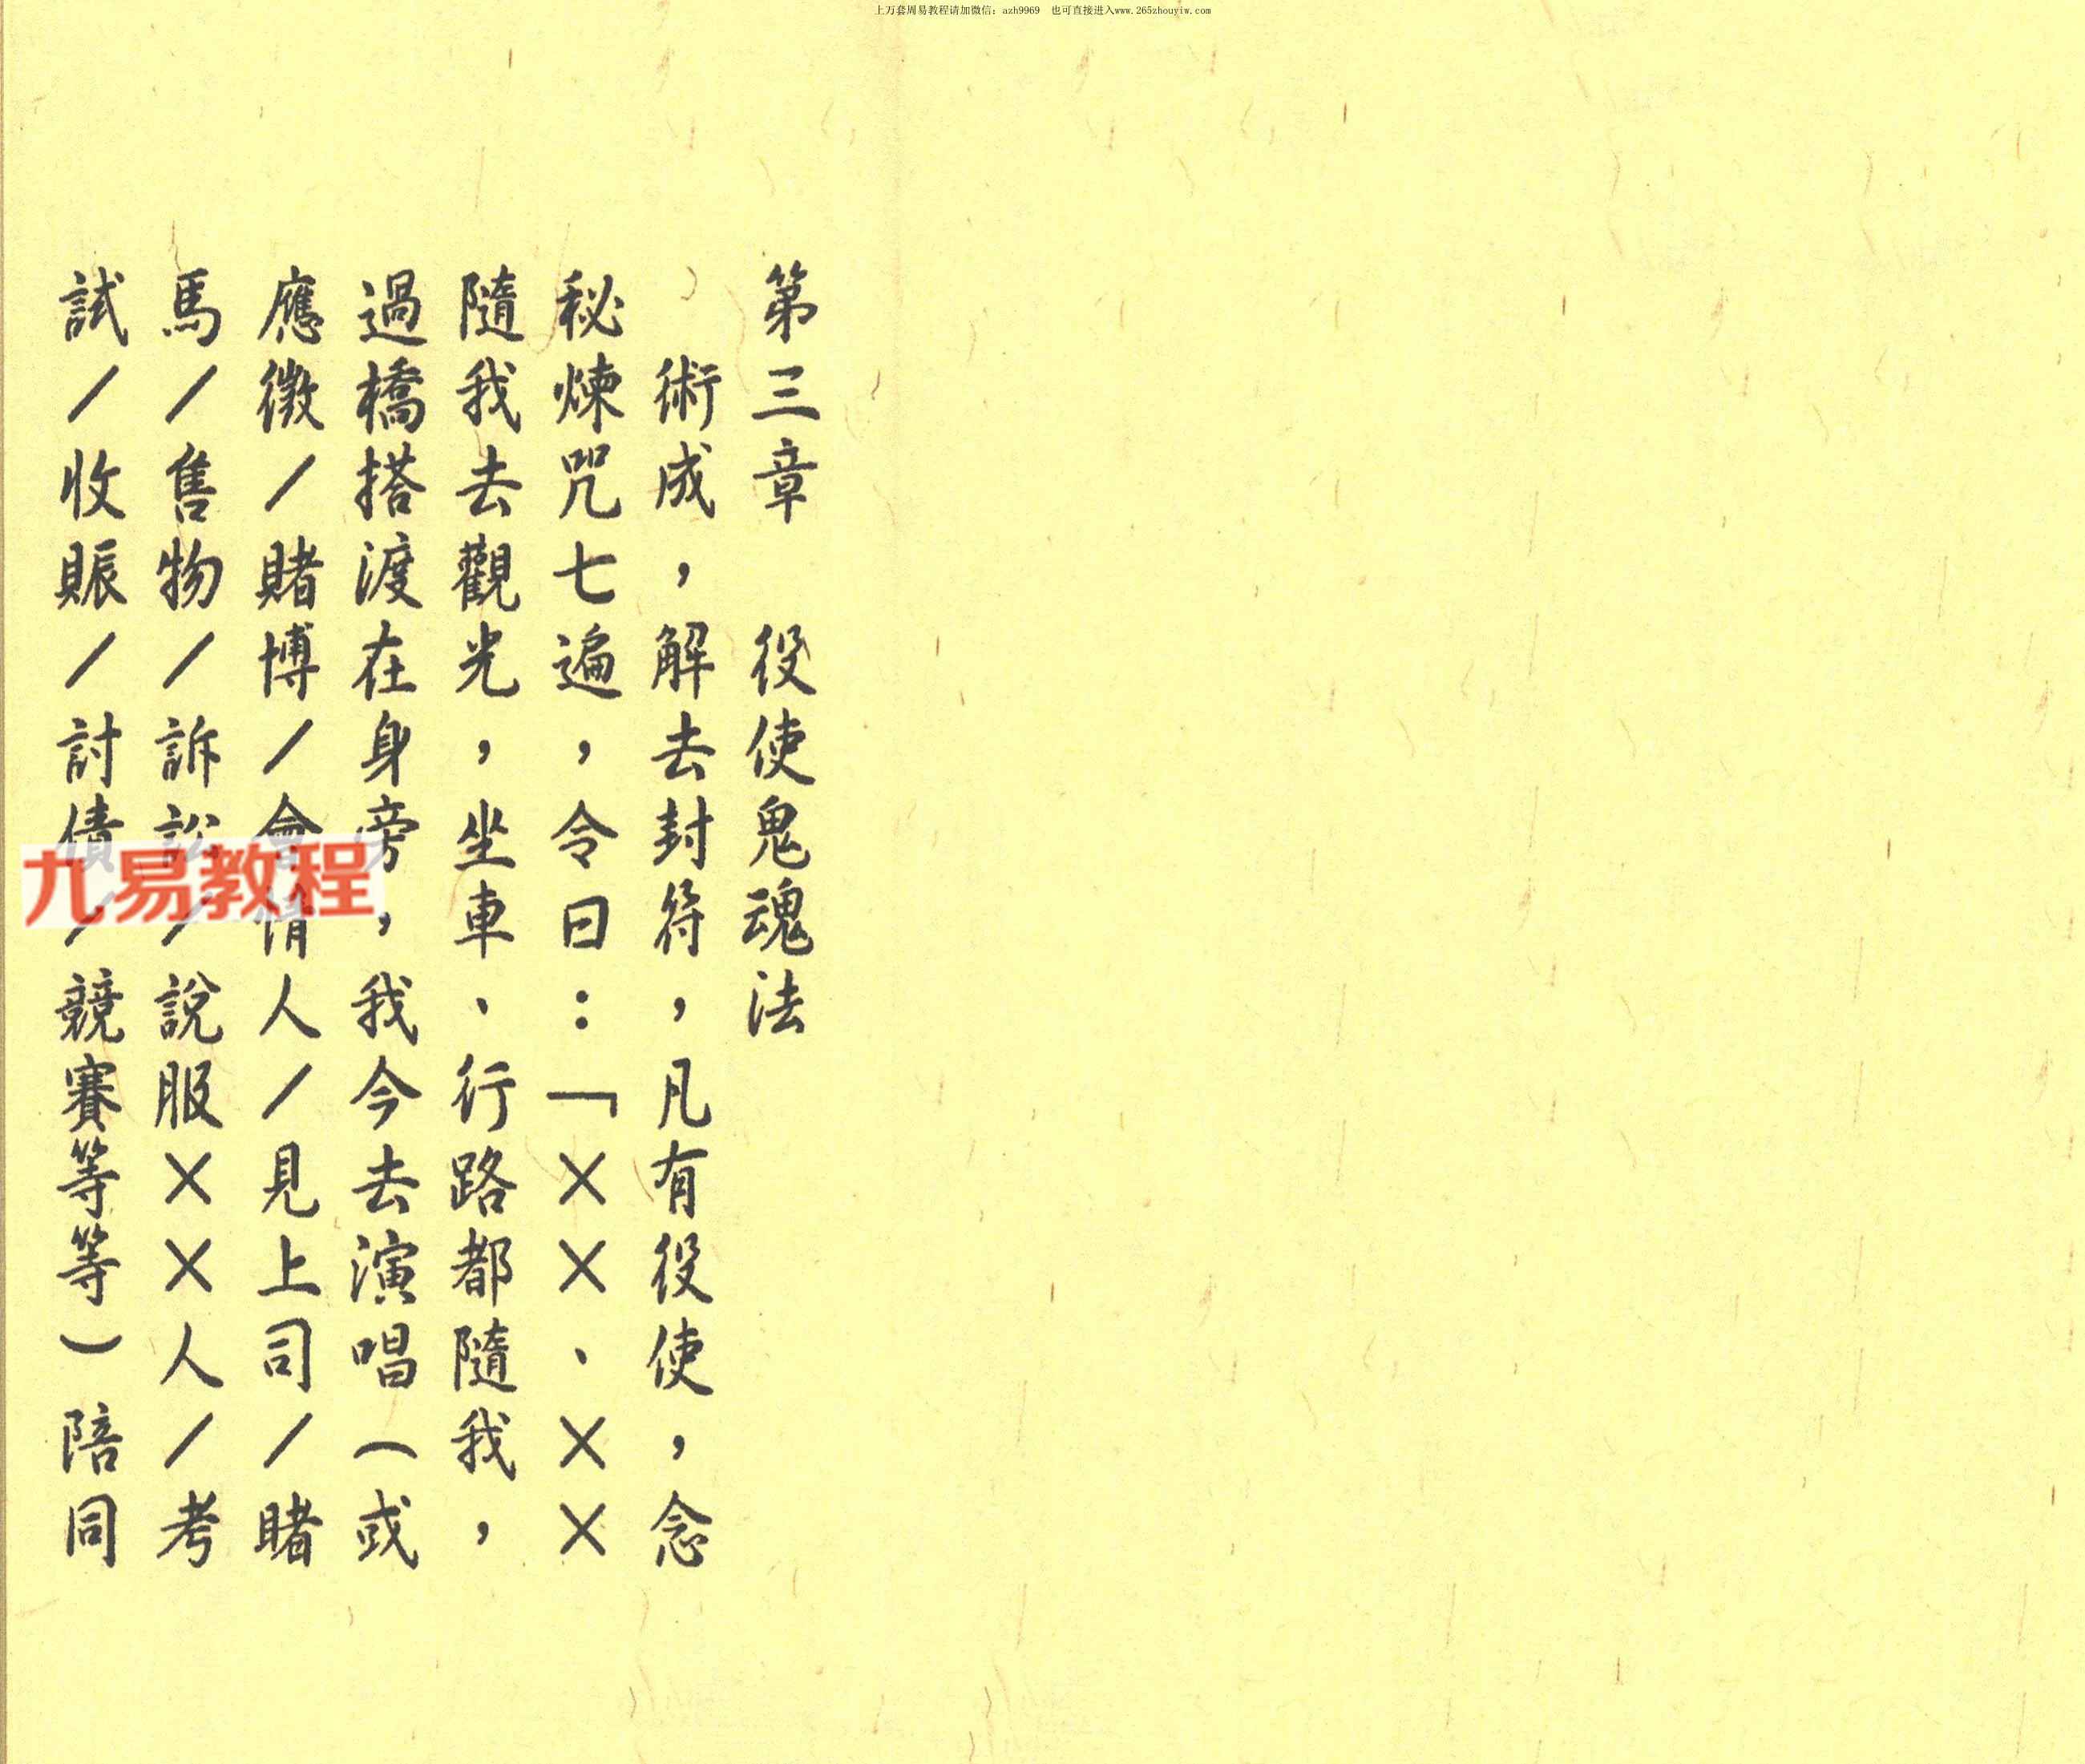 上万套周易教程请加微信：azh9969 也可直接进入www.265zhouyiw.com
第三章 役使鬼魂法
術成，解去封符，凡有役使，念
秘煉咒七遍，令曰：「××、××
隨我去觀光，坐車、行路都隨我，
過橋搭渡在身旁，我今去演唱（或
應徵／賭博／會情人／見上司／賭
馬／售物／訴訟／說服××人／考
試／收賬／討債／競賽等等）陪同
九易教程